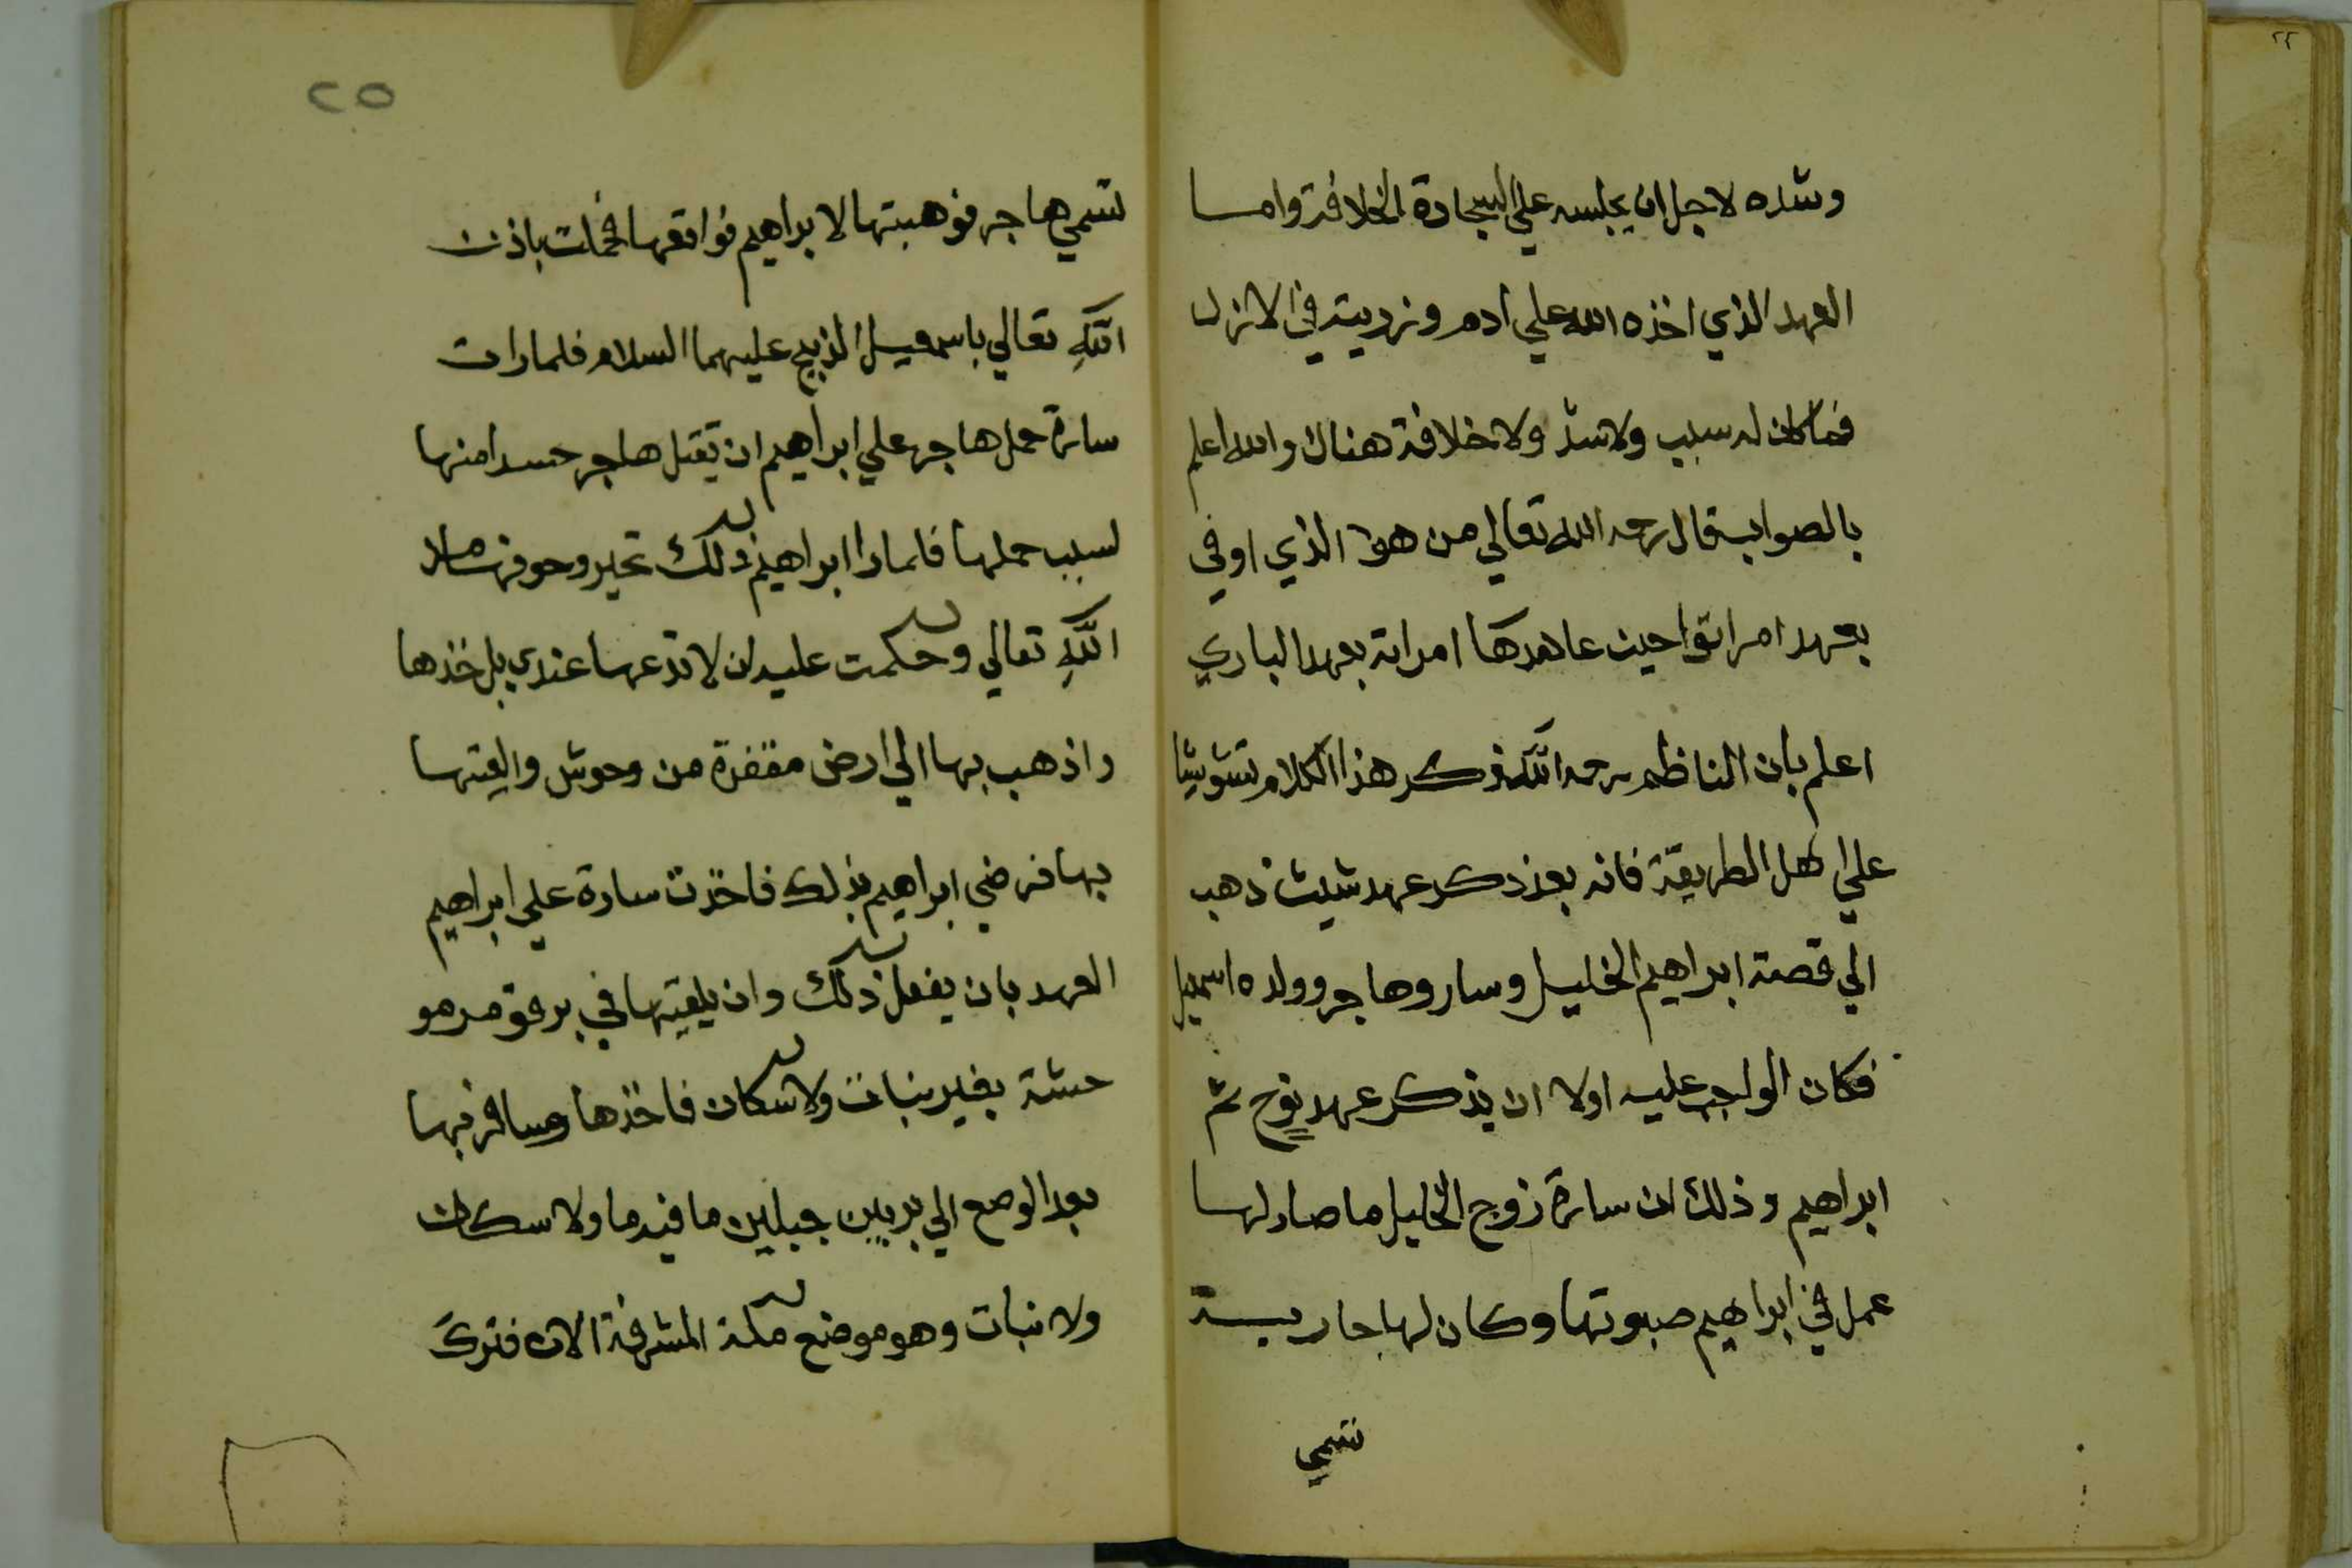 وشده لاجل ان يجلسه علي السجادة الخلافة واما
العهد الذي اخذه الله علي ادم وزريته في الازل
فما كان له سبب ولا شد ولا خلافة هناك والله اعلم
بالصواب قال رحمه الله تعالي من هو الذي اوفي
بعهد امراتو احين عاهدكها امراته بعهد الباري
اعلم بان الناظم رحمه الله ذكر هذا الكلام تشويشا
علي اهل الطريقة فانه بعد ذكر عهد شيث ذهب
الي قصة ابراهيم الخليل وسار وهاجر وولده اسمعيل
فكان الواجب عليه اولا ان يذكر عهد نوح ثم
ابراهيم وذلك ان سارة زوج الخليل ما صار لها
عمل في ابراهيم صبوتها وكان لها جارية
تسمي
٢٥
تسمي هاجر فوهبتها لابراهيم فواقعها فحملت باذن
الله تعالي باسمعيل الذبيح عليهما السلام فلما رات
سارة حمل هاجر علي ابراهيم ان تقتل هاجر حسدا منها
لسبب حملها فلما را ابراهيم ذلك تحير وخوفها
الله تعالي وحكمت عليه ان لا تدعها عندي بل خذها
واذهب بها الي ارض مقفرة من وحوش والقيتها
بها فرضي ابراهيم بذلك فاخذت سارة علي ابراهيم
العهد بان يفعل ذلك وان يلقيتها في برقة مرمو
حشة بغير نبات ولا سكان فاخذها وسافر بها
بعد الوضع الي بر بين جبلين ما فيه ما ولا سكان
ولا نبات وهو موضع مكة المشرفة الان فترك
٢٢